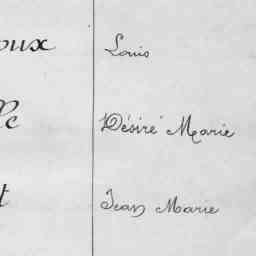 oux Louis
lle Désiré Marie
t Jean Marie